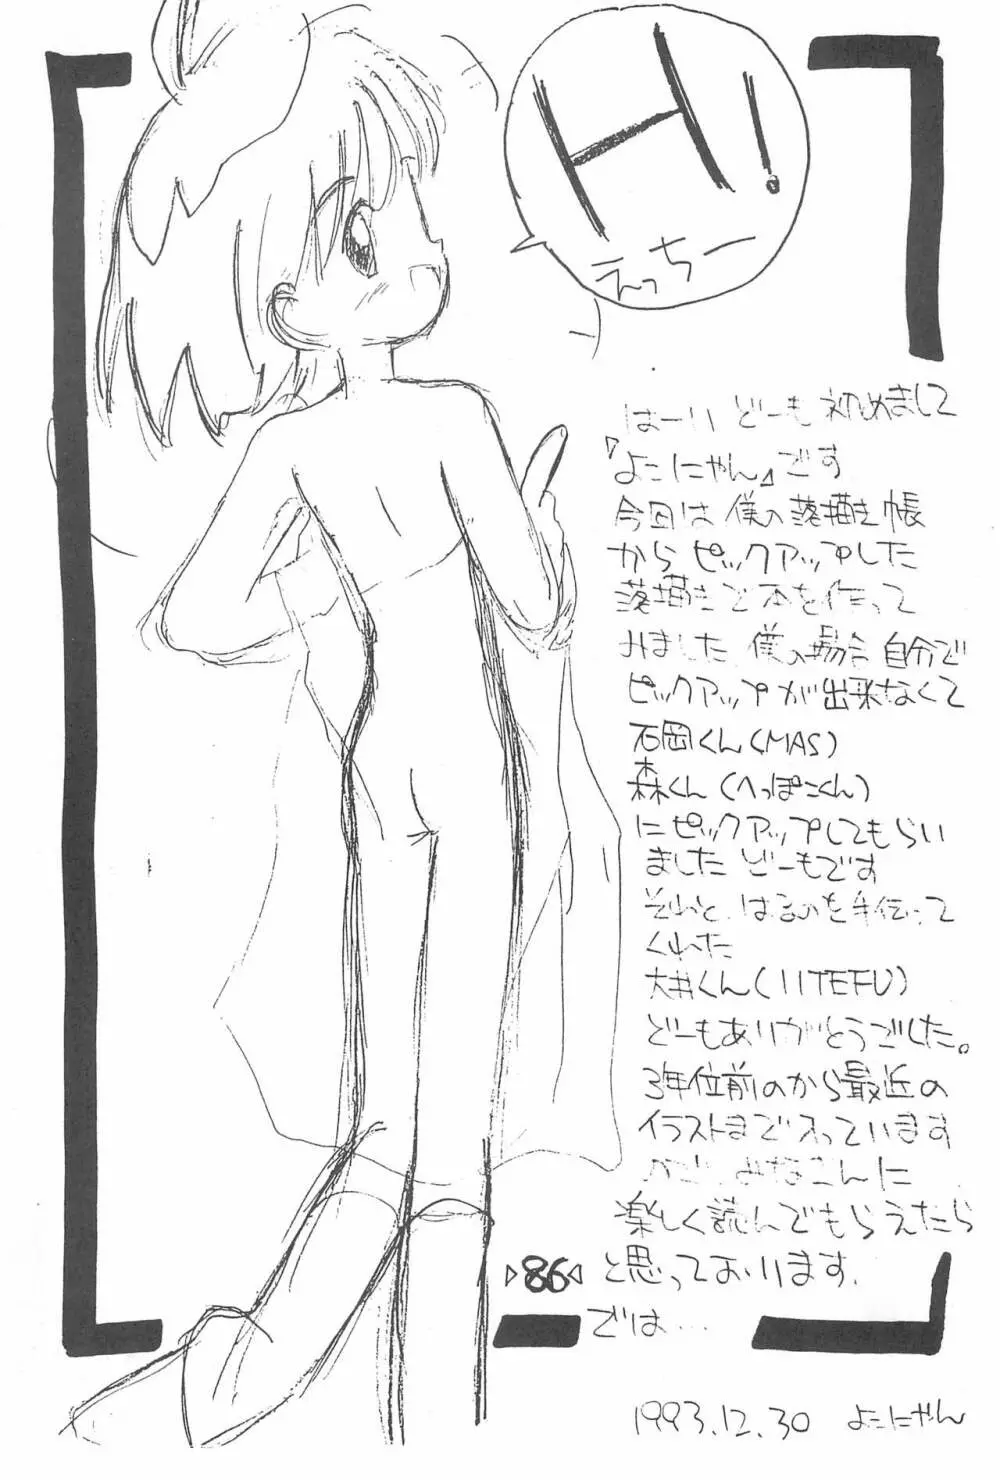 H!
えっちー
はーい どーも 初めまして
『よこにゃん』です
今回は 僕の落描き帳
から ピックアップした
落描きで 本を作って
みました 僕の場合 自分で
ピックアップが出来なくて
石岡くん(MAS)
森くん(へっぽこくん)
にピックアップしてもらい
ました どーもです
それと、はるのを手伝って
くれた
大井くん(IITEFU)
どーもありがとうごした。
3年位前のから最近の
イラストまで入っています
みなさんに
楽しく読んでもらえたら
と思っております.
では...
▷86◁
1993.12.30 よこにゃん